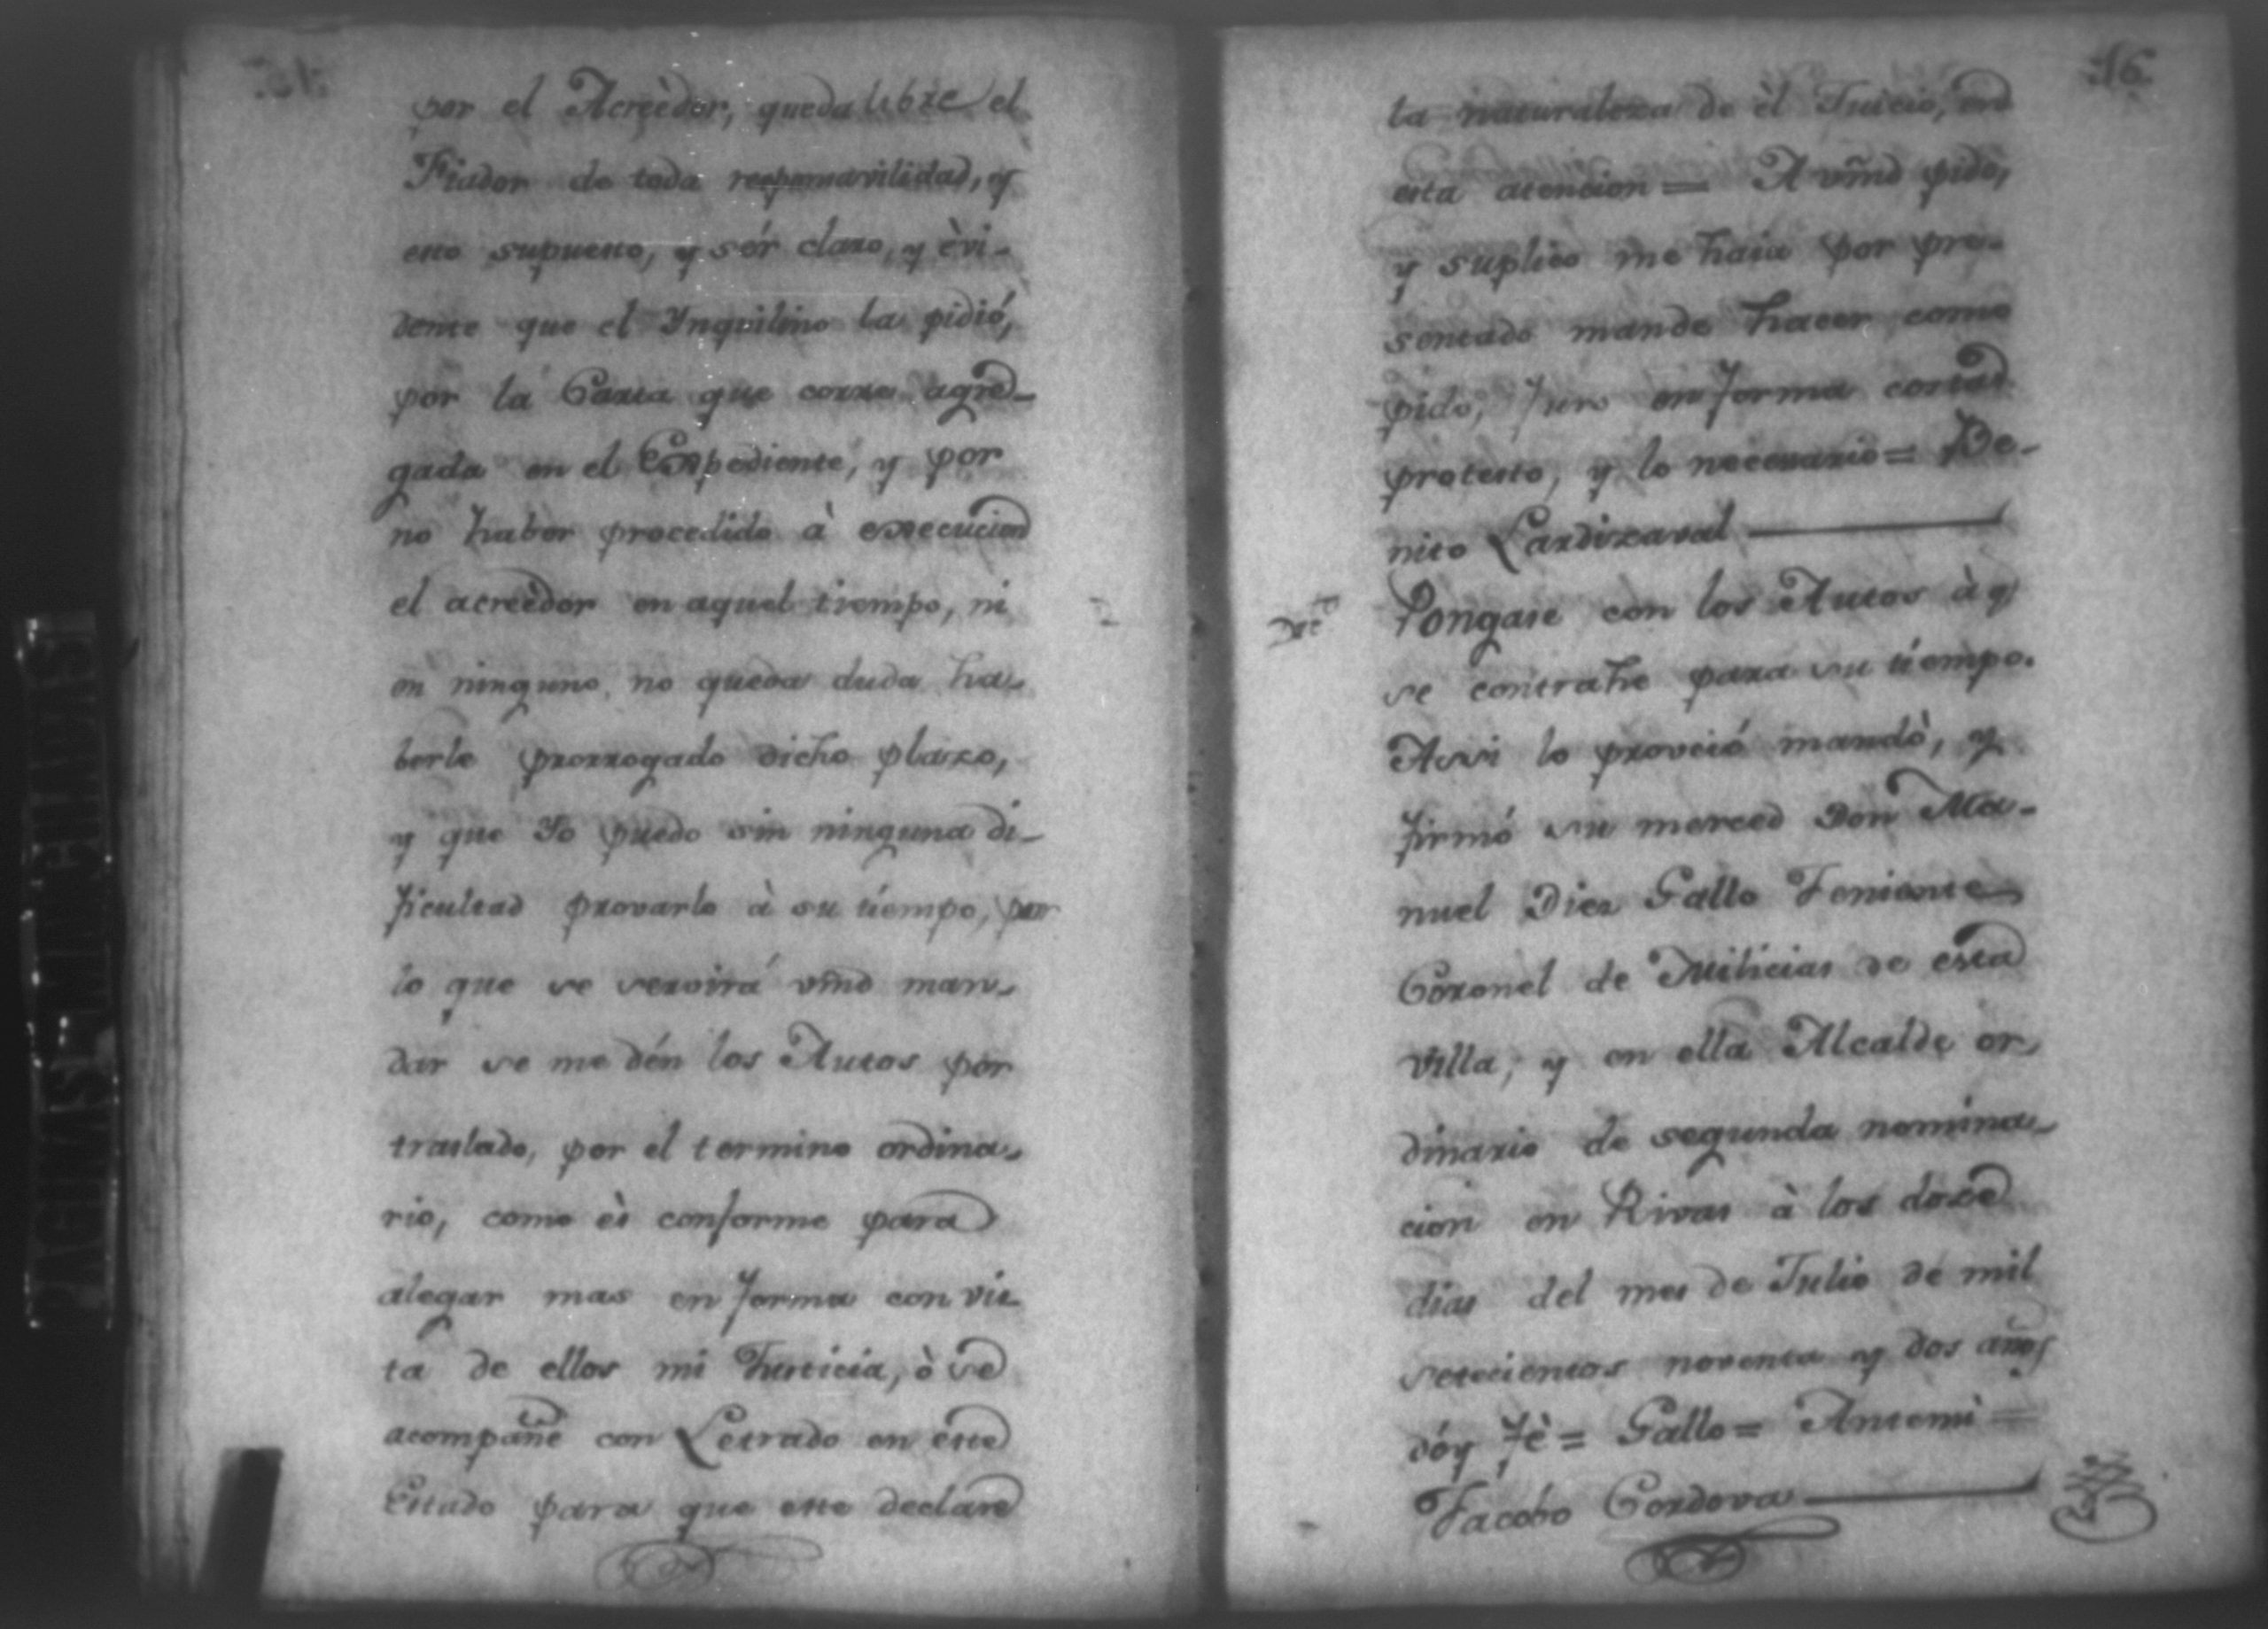 por el Acreèdor, queda libre el
Fiador de toda responsavilidad, y
esto supuesto, y sér claro, y èvi-
dente que el Ynquilino la pidió,
por la Carta que corre agre-
gada en el Expediente, y por
no haber procedido à execucion
el acreèdor en aquel tiempo, ni
en ninguno, no queda duda ha-
berle prorrogado dicho plazo,
y que Yo puedo sin ninguna di-
ficultad provarlo à su tiempo, por
lo que se servirá vmd man-
dar se me dén los Autos por
traslado, por el termino ordina-
rio, como és conforme para
alegar mas en forma con vis-
ta de ellos mi Justicia, ò se
acompañe con Letrado en este
Estado para que este declare
16
la naturaleza de èl Juicio, en
esta atencion = A vmd pido,
y suplico me haia por pre-
sentado mande hacer como
pido, Juro en forma costas
protesto, y lo necesario = Be-
nito Lardizaval
Dec.to Pongase con los Autos à q
se contrahe para su tiempo.
Assi lo proveió mandò, y
firmó su merced Don Ma-
nuel Diez Gallo Teniente
Coronel de Milicias de esta
villa, y en ella Alcalde or-
dinario de segunda nomina-
cion en Rivas à los doze
dias del mes de Julio de mil
setecientos noventa y dos años
dóy fè = Gallo = Antemi =
Jacobo Cordova